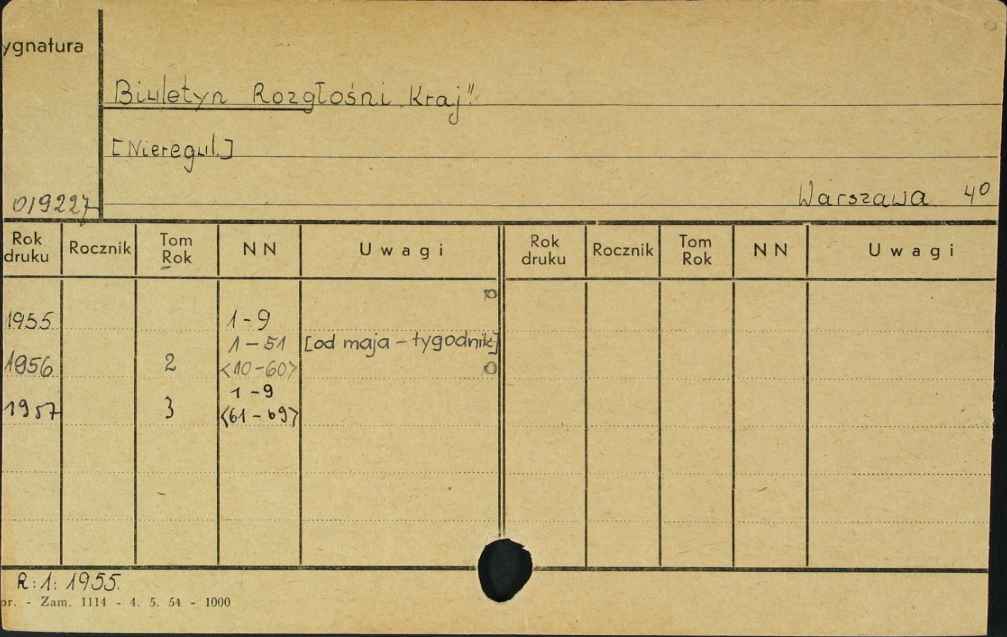 ygnatura
Biuletyn Rozgłośni „Kraj”
[Nieregul.]
019227
Warszawa 4⁰
Rok druku Rocznik Tom Rok NN Uwagi Rok druku Rocznik Tom Rok NN Uwagi
1955 1-9
1-51 [od maja – tygodnik]
1956 2 <10-60>
1-9
1957 3 <61-69>
R: 1: 1955.
pr. - Zam. 1114 - 4. 5. 54 - 1000